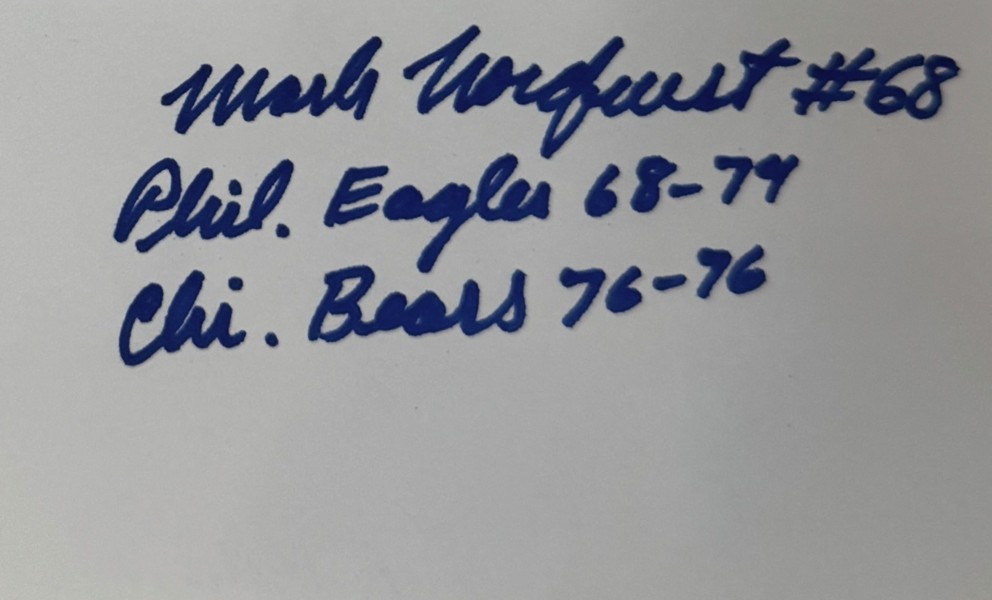 Mark Nordquist #68
Phil. Eagles 68-74
Chi. Bears 76-76